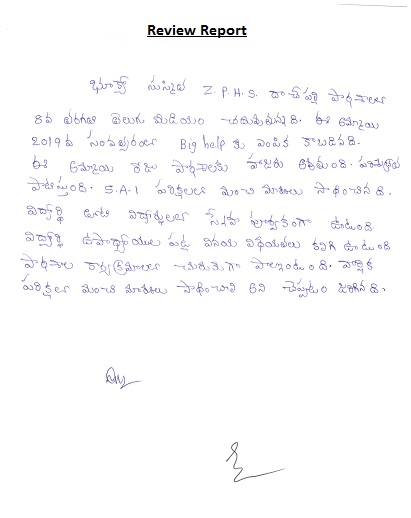 Review Report
భూక్యా సుస్మిత Z.P.H.S. దాచేపల్లి పాఠశాలలో
8వ తరగతి తెలుగు మీడియం చదువుతున్నది. ఈ అమ్మాయి
2019వ సంవత్సరంలో Big help కు ఎంపిక కాబడినది.
ఈ అమ్మాయి రోజు పాఠశాలకు హాజరు అవుతుంది.
పాటిస్తుంది. S.A-1 పరీక్షలలో మంచి మార్కులు సాధించినది.
విద్యార్థి తోటి విద్యార్థులలో స్నేహ పూర్వకంగా ఉంటుంది
విద్యార్థి ఉపాధ్యాయుల పట్ల వినయ విధేయతలు కలిగి ఉంటుంది
పాఠశాల కార్యక్రమాలలో చురుకుగా పాల్గొంటుంది. వార్షిక
పరీక్షలలో మంచి మార్కులు సాధించాలి అని చెప్పడం జరిగినది.